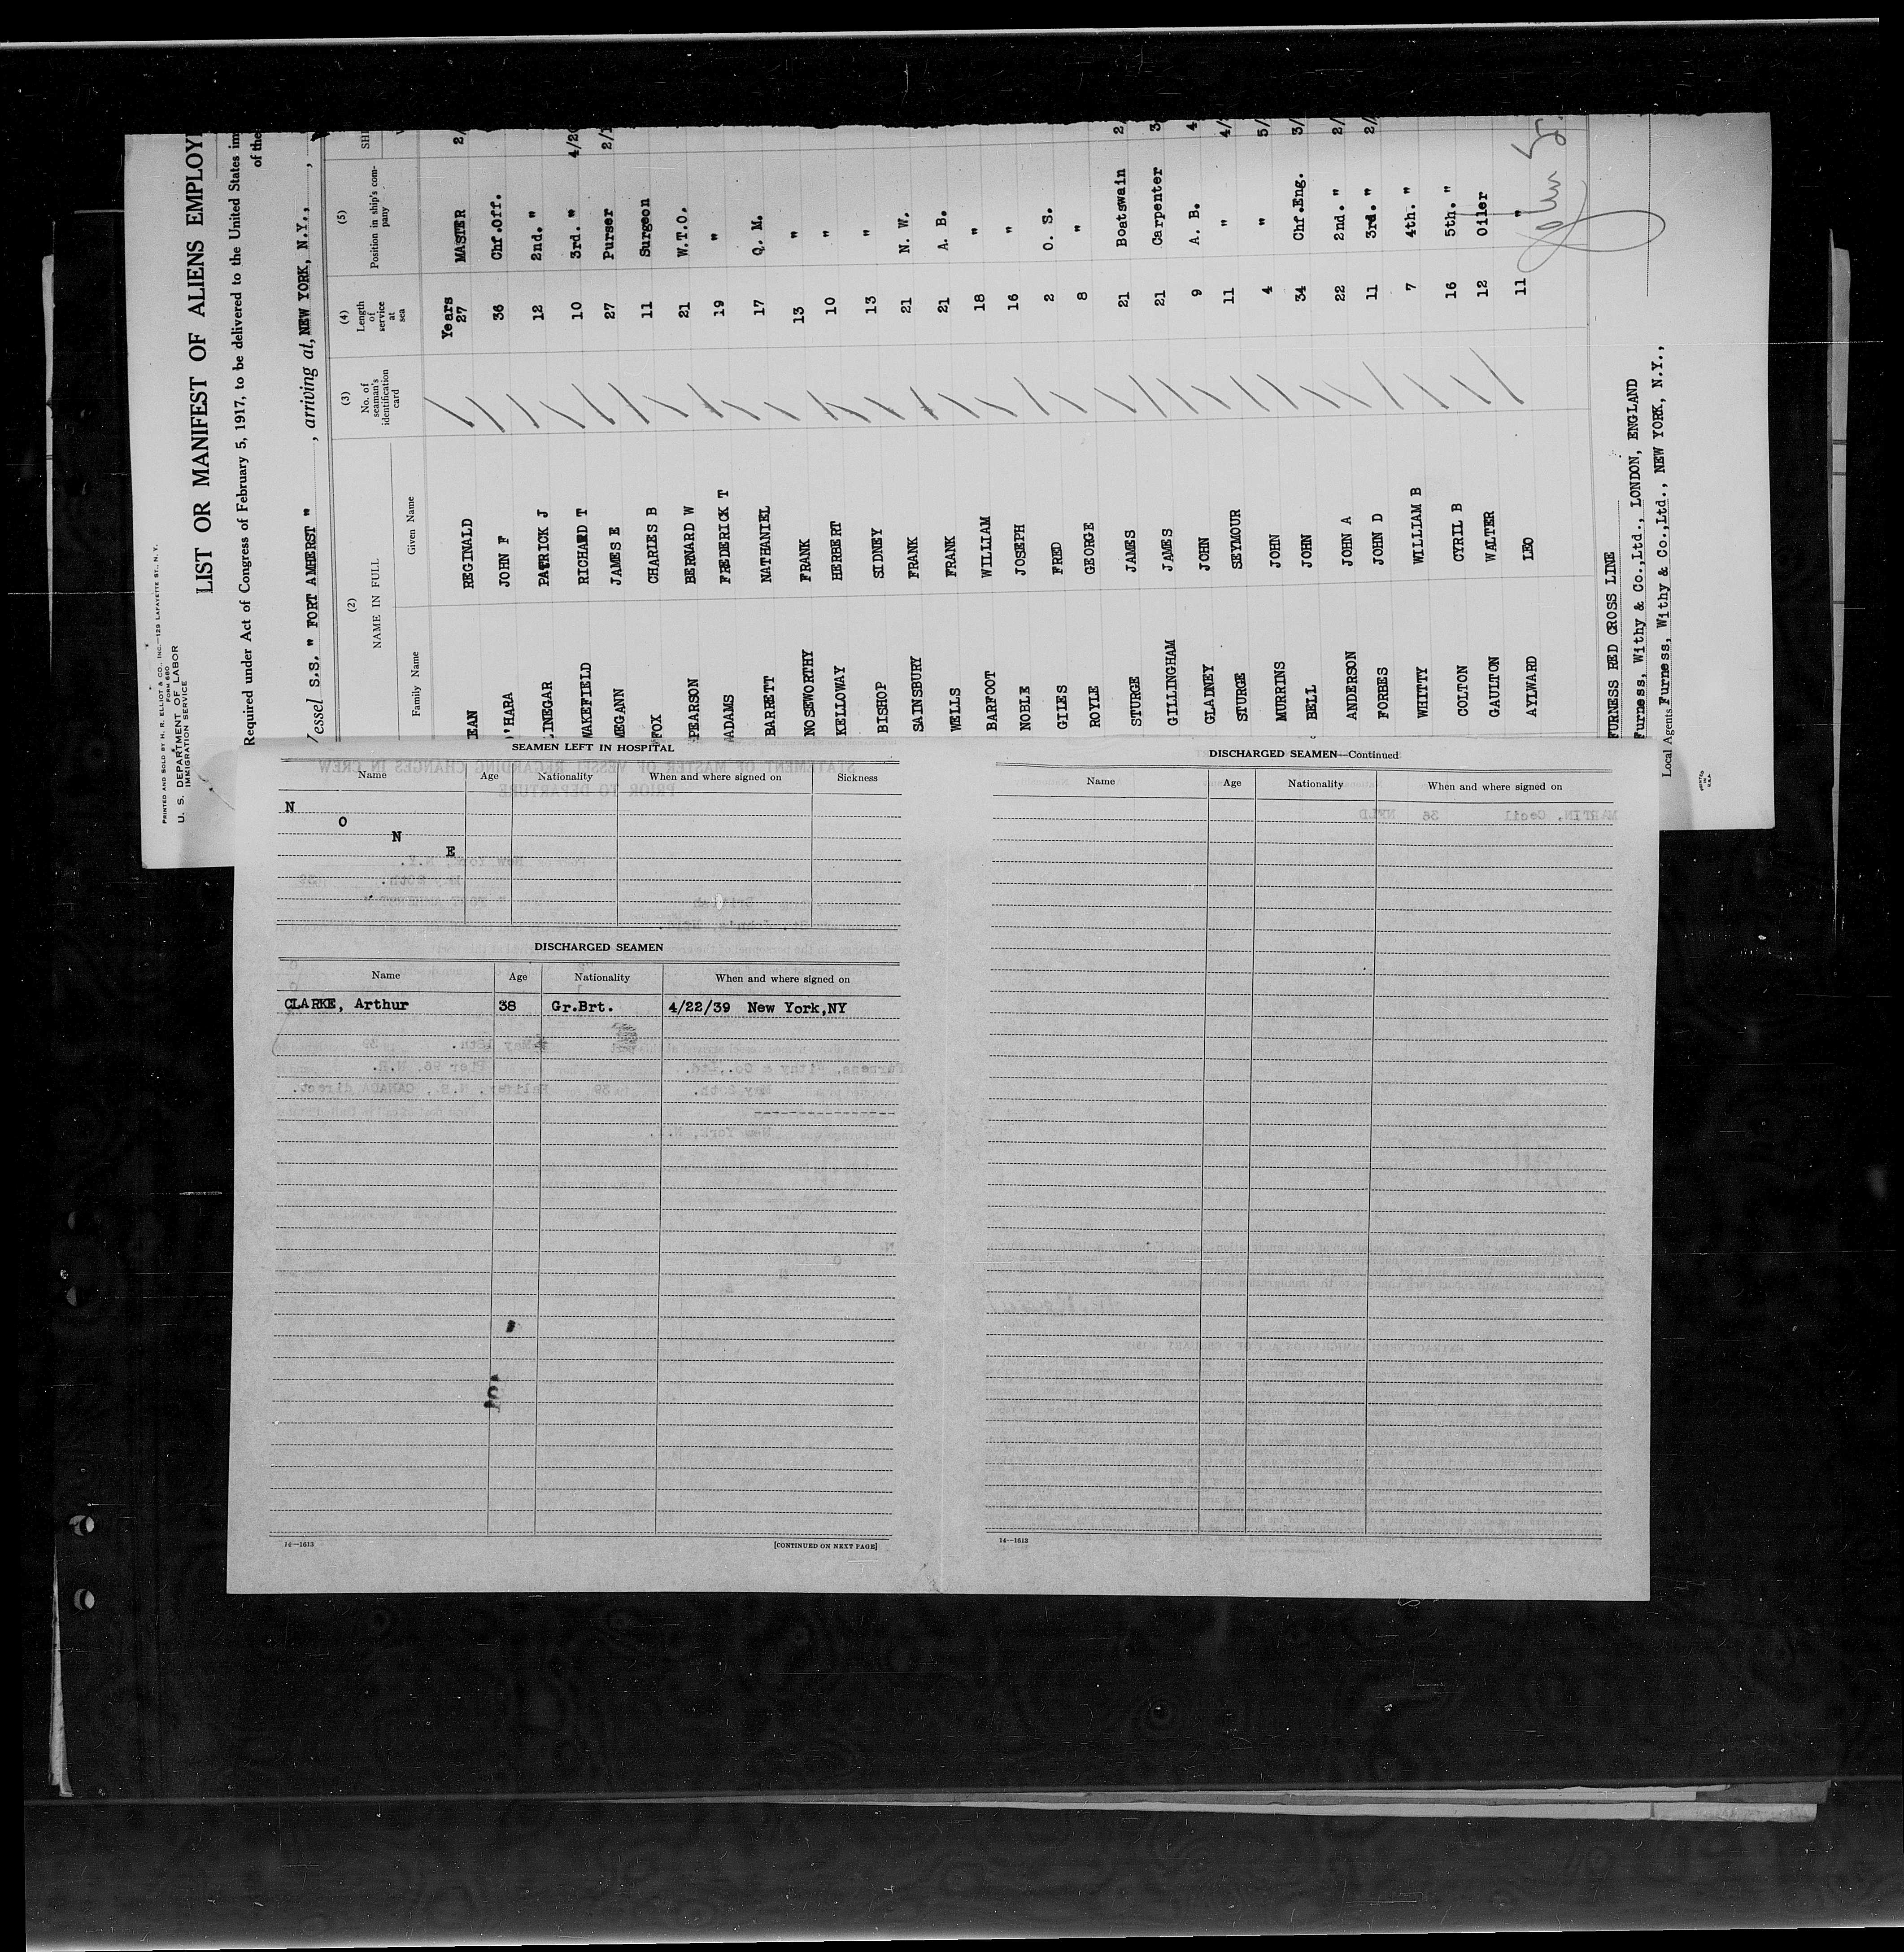 PRINTED AND SOLD BY H. R. ELLIOT & CO., INC.—129 LAFAYETTE ST., N. Y.
FORM 680
U. S. DEPARTMENT OF LABOR
IMMIGRATION SERVICE
LIST OR MANIFEST OF ALIENS EMPLOY
Required under Act of Congress of February 5, 1917, to be delivered to the United States im
of the
Vessel S.S. " FORT AMHERST " , arriving at, NEW YORK, N.Y.,
(2) (3) (4) (5)
NAME IN FULL No. of seaman's identification card Length of service at sea Position in ship's company SHI
Family Name Given Name
Years
EAN REGINALD 27 MASTER 2/
'HARA JOHN F 36 Chf.Off.
LINEGAR PATRICK J 12 2nd. "
WAKEFIELD RICHARD T 10 3rd. " 4/20
MEGANN JAMES E 27 Purser 2/1
FOX CHARLES B 11 Surgeon
PEARSON BERNARD W 21 W.T.O.
ADAMS FREDERICK T 19 "
BARRETT NATHANIEL 17 Q. M.
NOSEWORTHY FRANK 13 "
KELLOWAY HERBERT 10 "
BISHOP SIDNEY 13 "
SAINSBURY FRANK 21 N. W.
WELLS FRANK 21 A. B.
BARFOOT WILLIAM 18 "
NOBLE JOSEPH 16 "
GILES FRED 2 O. S.
ROYLE GEORGE 8 "
STURGE JAMES 21 Boatswain 2/
GILLINGHAM JAMES 21 Carpenter 3
GLADNEY JOHN 9 A. B. 4
STURGE SEYMOUR 11 " 4/
MURRINS JOHN 4 " 5/
BELL JOHN 34 Chf.Eng. 3/
ANDERSON JOHN A 22 2nd. " 2/
FORBES JOHN D 11 3rd. " 2/
WHITTY WILLIAM B 7 4th. "
COLTON CYRIL B 16 5th. "
GAULTON WALTER 12 Oiler
AYLWARD LEO 11 "
FURNESS RED CROSS LINE
Furness, Withy & Co.,Ltd., LONDON, ENGLAND
Local Agents Furness, Withy & Co.,Ltd., NEW YORK, N.Y.,
PRINTED IN U.S.A.
SEAMEN LEFT IN HOSPITAL
Name Age Nationality When and where signed on Sickness
N
O
N
E
DISCHARGED SEAMEN
Name Age Nationality When and where signed on
CLARKE, Arthur 38 Gr.Brt. 4/22/39 New York,NY
14—1613 [CONTINUED ON NEXT PAGE]
DISCHARGED SEAMEN—Continued
Name Age Nationality When and where signed on
14—1613